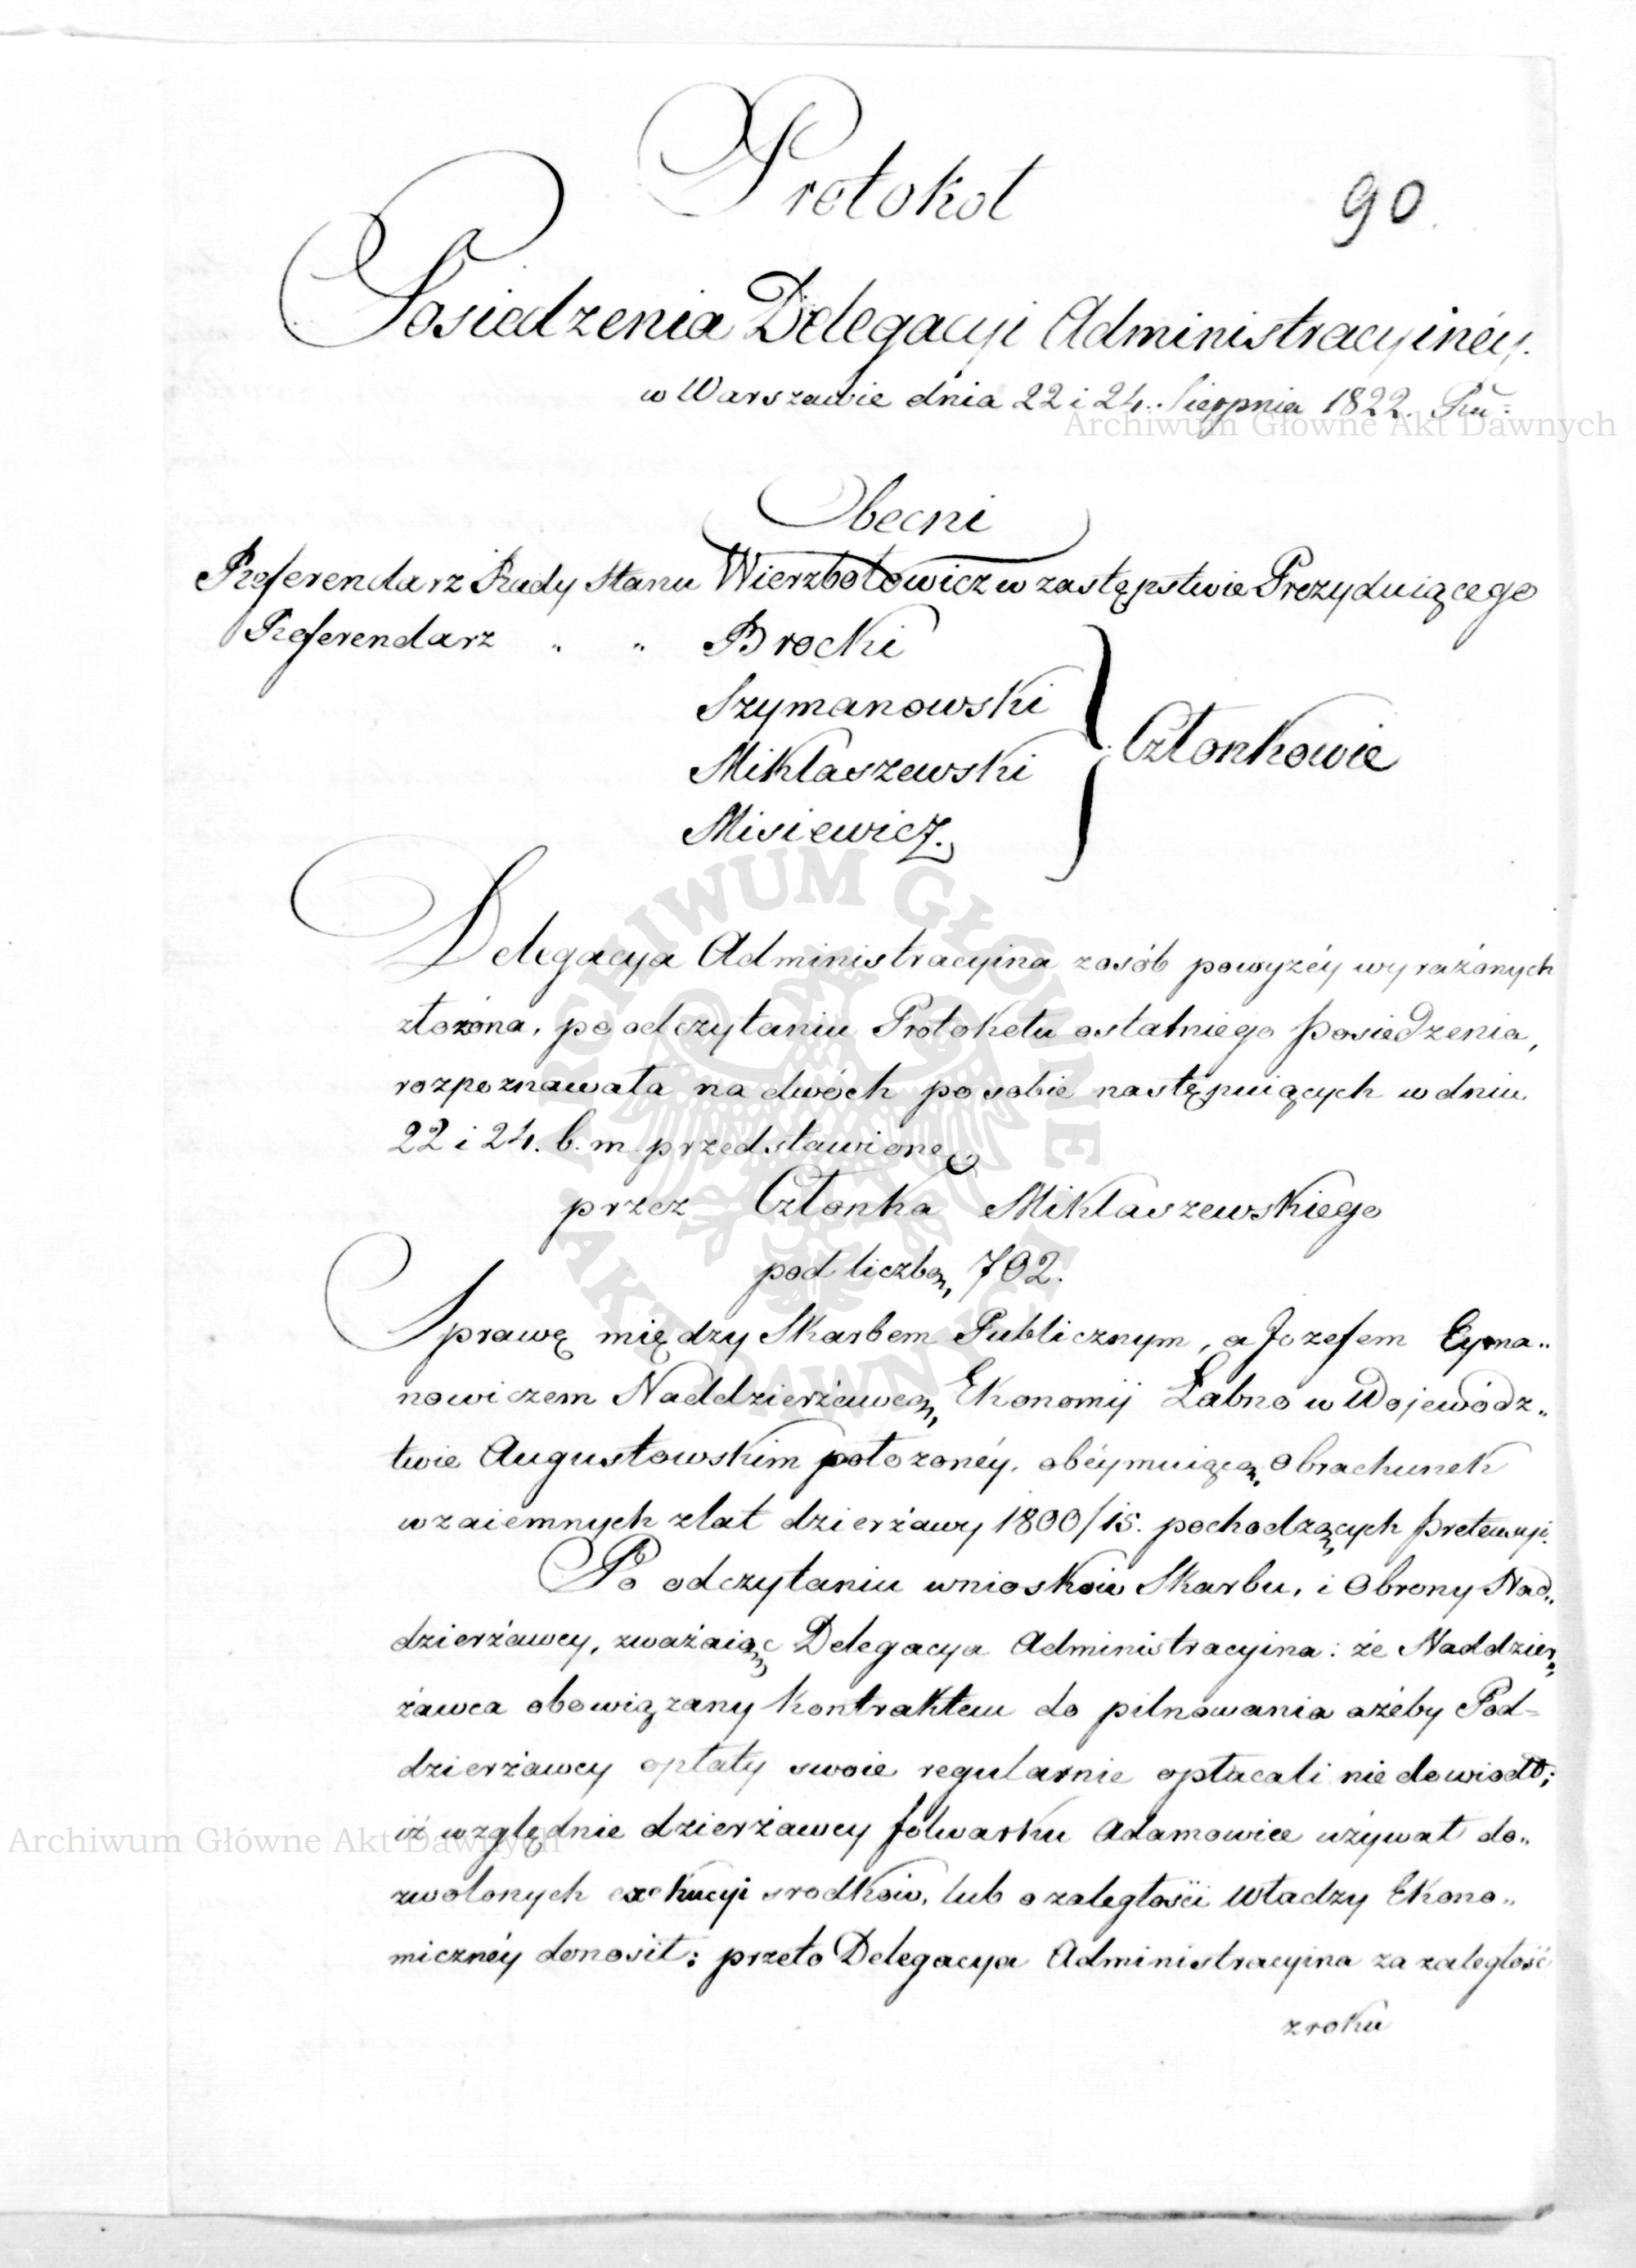 Protokół
90.
Posiedzenia Delegacyi Administracyinéy.
w Warszawie dnia 22 i 24. Sierpnia 1822. Ru:
Archiwum Główne Akt Dawnych
Obecni
Referendarz Rady Stanu Wierzbołowicz w zastępstwie Prezyduiącego
Referendarz " " Brocki
Szymanowski
Członkowie
Mikłaszewski
Misiewicz.
Delegacya Administracyina z osób powyżéy wyrażonych
złożona, po odczytaniu Protokółu ostatniego posiedzenia,
rozpoznawała na dwóch po sobie następuiących w dniu
22 i 24. b. m. przedstawione
przez Członka Mikłaszewskiego
pod liczbą 702.
Sprawę między Skarbem Publicznym, a Jozefem Eyma..
nowiczem Naddzierżawcą Ekonomij Łabno w Wojewódz..
twie Augustowskim położonéy, obéymuiącą obrachunek
wzaiemnych z lat dzierżawy 1800/15. pochodzących pretensyi.
Po odczytaniu wniosków Skarbu, i Obrony Nad..
dzierżawcy, zważaiąc Delegacya Administracyina: że Naddzier..
żawca obowiązany kontraktem do pilnowania ażeby Pod=
dzierżawcy opłaty swoie regularnie opłacali nie dowiódł;
iż względnie dzierżawcy folwarku Adamowice używał do..
zwolonych exekucyi srodków, lub o zaległości Władzy Ekono..
micznéy donosił; przeto Delegacya Administracyina za zaległość
z roku
ARCHIWUM GŁÓWNE AKT DAWNYCH
Archiwum Główne Akt Dawnych